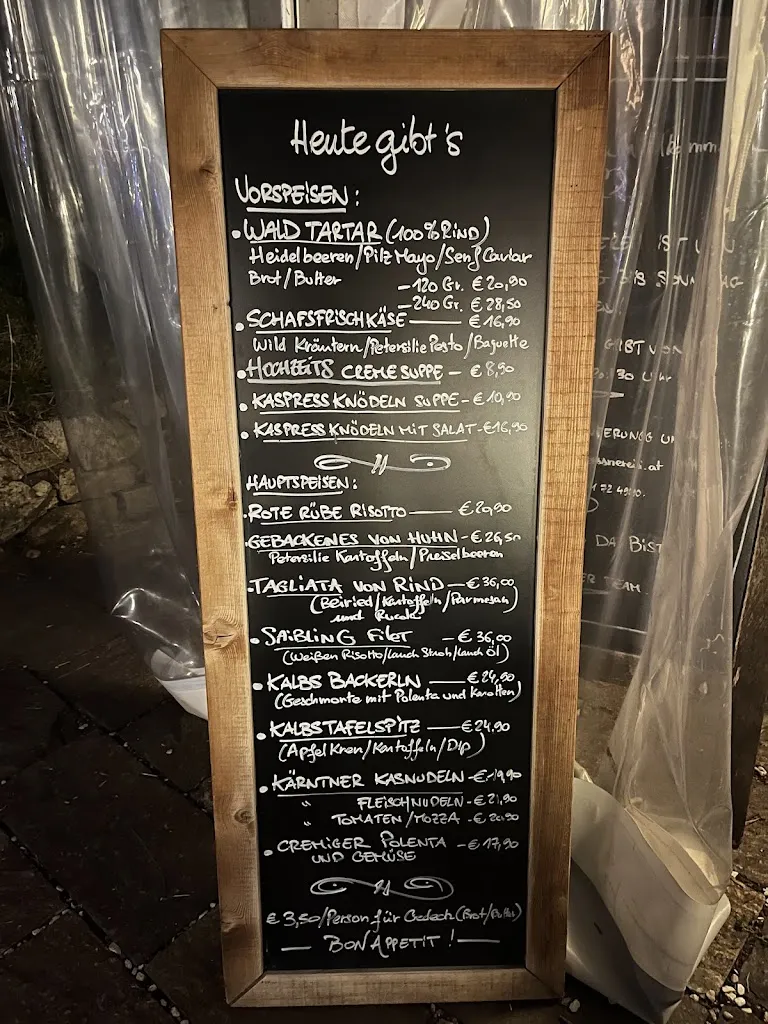 Heute gibt's
VORSPEISEN:
• WALD TARTAR (100% RIND)
Heidelbeeren/Pilz Mayo/Senf Caviar
Brot/Butter
-120 Gr. €20,90
-240 Gr. €28,50
• SCHAFSFRISCHKÄSE — €16,90
Wild Kräutern/Petersilie Pesto/Baguette
• HOCHZEITS CREMESUPPE - €8,90
• KASPRESS KNÖDELN SUPPE - €10,90
• KASPRESS KNÖDELN MIT SALAT - €16,90
HAUPTSPEISEN:
• ROTE RÜBE RISOTTO — €20,90
• GEBACKENES VON HUHN - €26,50
Petersilie Kartoffeln/Preiselbeeren
• TAGLIATA VON RIND — €36,00
(Beiried/Kartoffeln/Parmesan)
und Rucola
• SAIBLING Filet - €36,00
(Weißen Risotto/Lauch Stroh/Lauch öl)
• KALBS BACKERLN — €24,90
(Geschmorte mit Polenta und Karotten)
• KALBSTAFELSPITZ — €24,90
(Apfel Kren/Kartoffeln/Dip)
• KÄRNTNER KASNUDELN - €19,90
" FLEISCHNUDELN - €21,90
" TOMATEN/MOZZA - €20,90
• CREMIGER POLENTA - €17,90
UND GEMÜSE
€3,50/Person für Gedeck (Brot/Butter)
— BON APPETIT! —
IST
GIBT VON
:30 Uhr
.at
DA BIST
TEAM